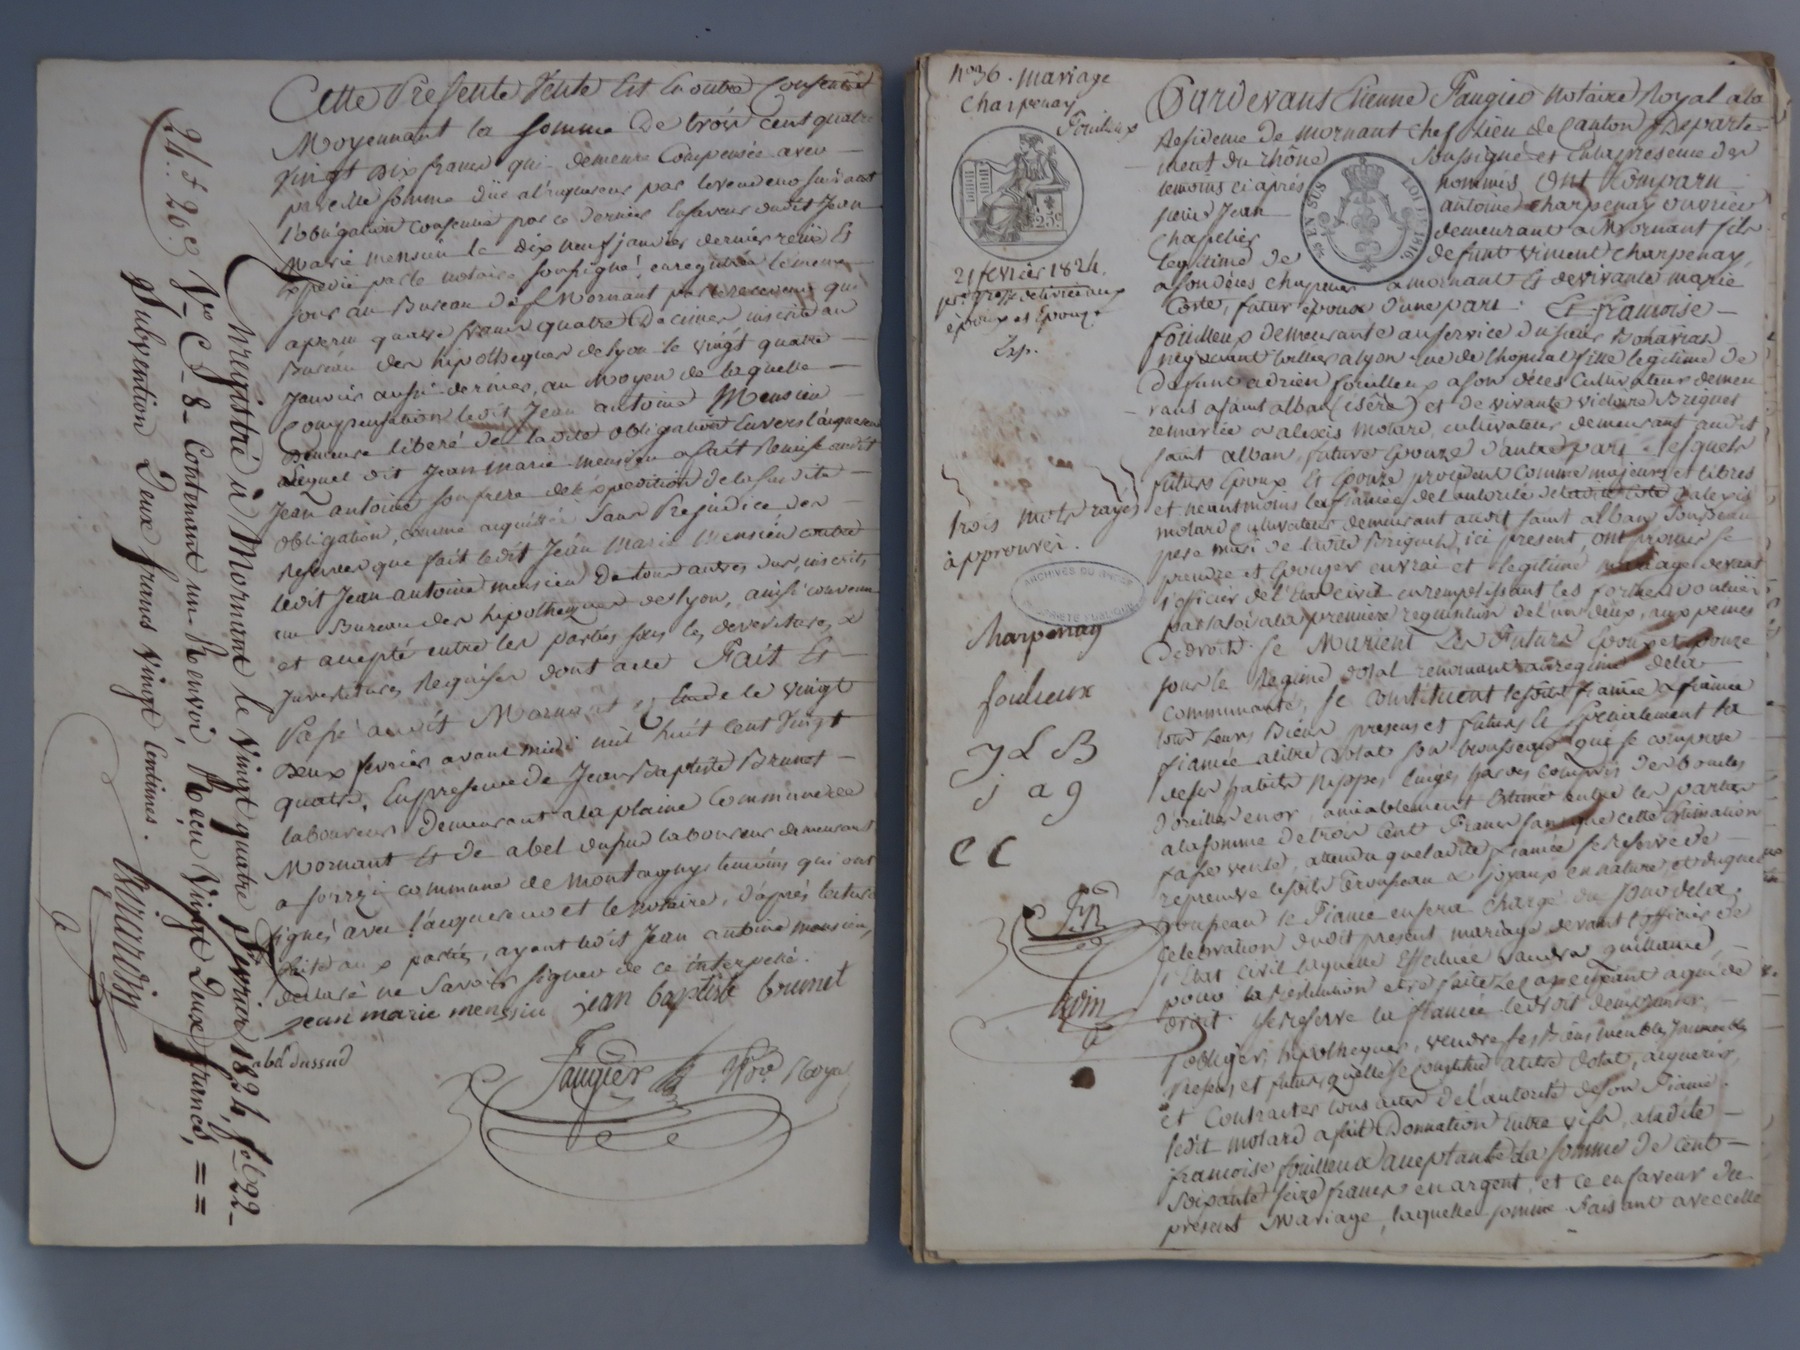 Cette Presente Vente Est En outre Consentie
Moyennant la somme De trois cent quatre
vingt dix francs qui demeure Compensée avec
pareille somme düe a l'acquereur par le vendeur suivant
l'obligation consentie par ce dernier En faveur dudit Jean
Marie mensieu le dix neuf janvier dernier reçue Et
expedié par le notaire soussigné, enregistrée le même
jour au Bureau de Mornant par le receveur qui
a perçu quatre francs quatre Decimes inscrite au
Bureau des hipotheques de lyon le vingt quatre
Janvier aussi dernier, au Moyen de laquelle
Compensation ledit Jean antoine Mensieu
Demeure libéré de ladite obligation Envers l'acquereur
Lequel dit Jean Marie mensieu a fait Remise audit
Jean Antoine son frere de l'expedition de la susdite
obligation, comme acquittée Sans Prejudice des
reserves que fait ledit Jean Marie Mensieu contre
ledit Jean antoine mensieu De tous autres dus, inscrits
au Bureau des hipotheques de lyon, ainsi convenu
et accepté entre les parties sous les
requises dont acte Fait Et
Passé audit Mornant Etude le vingt
Deux fevrier avant midi mil huit cent vingt
quatre, En presence de Jean Baptiste Brunet
laboureur Demeurant a la plaine Commune de
Mornant Et de abel dussud laboureur demeurant
a commune de Montagny temoins qui ont
signés avec l'acquereur et le notaire, d'après lecture
faite aux parties, ayant ledit Jean antoine mensieu,
declaré ne Savoir signer de ce interpellé.
Jean marie mensieu jean baptiste brunet
abel dussud
Faugier Nre Royal
24. f 20. c
Enregistré à Mornant le vingt quatre Fevrier 1824, fol. 22
Vo C. 8 - Contenant un Renvoi, Reçu Vingt Deux francs,
Subvention Deux francs vingt Centimes.
No 36. Mariage
Charpenay
Fouilleux
25c
21 fevrier 1824.
pre Grosse delivrée aux
époux et Epouze
trois mots rayés
à pprouver.
ARCHIVES DU RHÔNE
Charpenay
foulieux
J L B
j a g
C C
Pardevant Etienne Faugier Notaire Royal a la
Residence de mornant chef Lieu de Canton Departe=
ment du Rhône Soussigné et En la presence des
temoins ci après nommés, Ont Comparu
sieur Jean antoine Charpenay ouvrier
Chapelier demeurant a Mornant fils
legitime de defunt vincent Charpenay,
a son décès chapelier a mornant Et de vivante marie
Coste, futur époux d'une part. Et Francoise
fouilleux demeurante au service du sieur
negociant toillier a lyon rue de l'hopital fille legitime de
Defunt adrien fouilleux a son décès Cultivateur demeu
rant a saint alban (isère) et de vivante victoire Briguet
remariée a alexis Motard, cultivateur demeurant audit
saint alban, future Epouze d'autre part. Lesquels
futurs Epoux Et Epouze procedent comme majeurs et libres
et neantmoins la fiancée de l'autorité d'alexis
motard Cultivateur demeurant audit saint alban Son beau
pere mari de ladite Briguet, ici present, ont promis se
prendre et Epouzer en vrai et legitime mariage devant
l'officier de l'Etat civil en remplissant les formes voulües
par la loi a la premiere requisition de l'un deux, aux peines
De droits. Se Marient Les Futurs Epoux et Epouze
sous le Regime dotal renonçant au regime de la
communauté, Se Constituent lesdits fiancés & fiancée
tous Leurs Biens presens et futurs Et Specialement la
fiancée a titre Dotal Son trousseau qui se compose
de ses habits Nippes, linges, hardes compris des boucles
d'oreilles en or, amiablement Estimé entre les parties
a la somme de trois cent Francs sans que cette Estimation
fasse vente, attendu que ladite fiancée se reserve de
reprendre lesdits trousseau & joyaux en nature, et duquel
trousseau le Fiancé en sera chargé du jour de la
Celebration dudit present mariage devant l'officier de
l'Etat Civil laquelle Effectuée vaudra quittance,
pour la Restitution etre faite le cas echeant a qui de
droit. Se reserve la fiancée le droit d'emprunter,
obliger, hipothequer, vendre ses Biens meubles Immeubles
presens et futurs qu'elle se constitue a titre Dotal, acquerir,
et Contracter tous actes de l'autorité de son Fiancé.
ledit motard a fait Donnation Entre vifs, a ladite
francoise fouilleux acceptante La somme de cent
soixante seize francs en argent, et ce en faveur du
present Mariage, laquelle somme Faisant avec celle